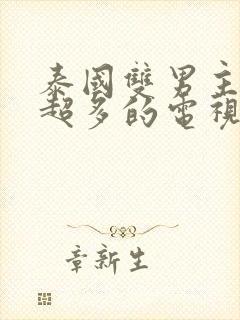 泰國雙男主
超多的電視
章新生